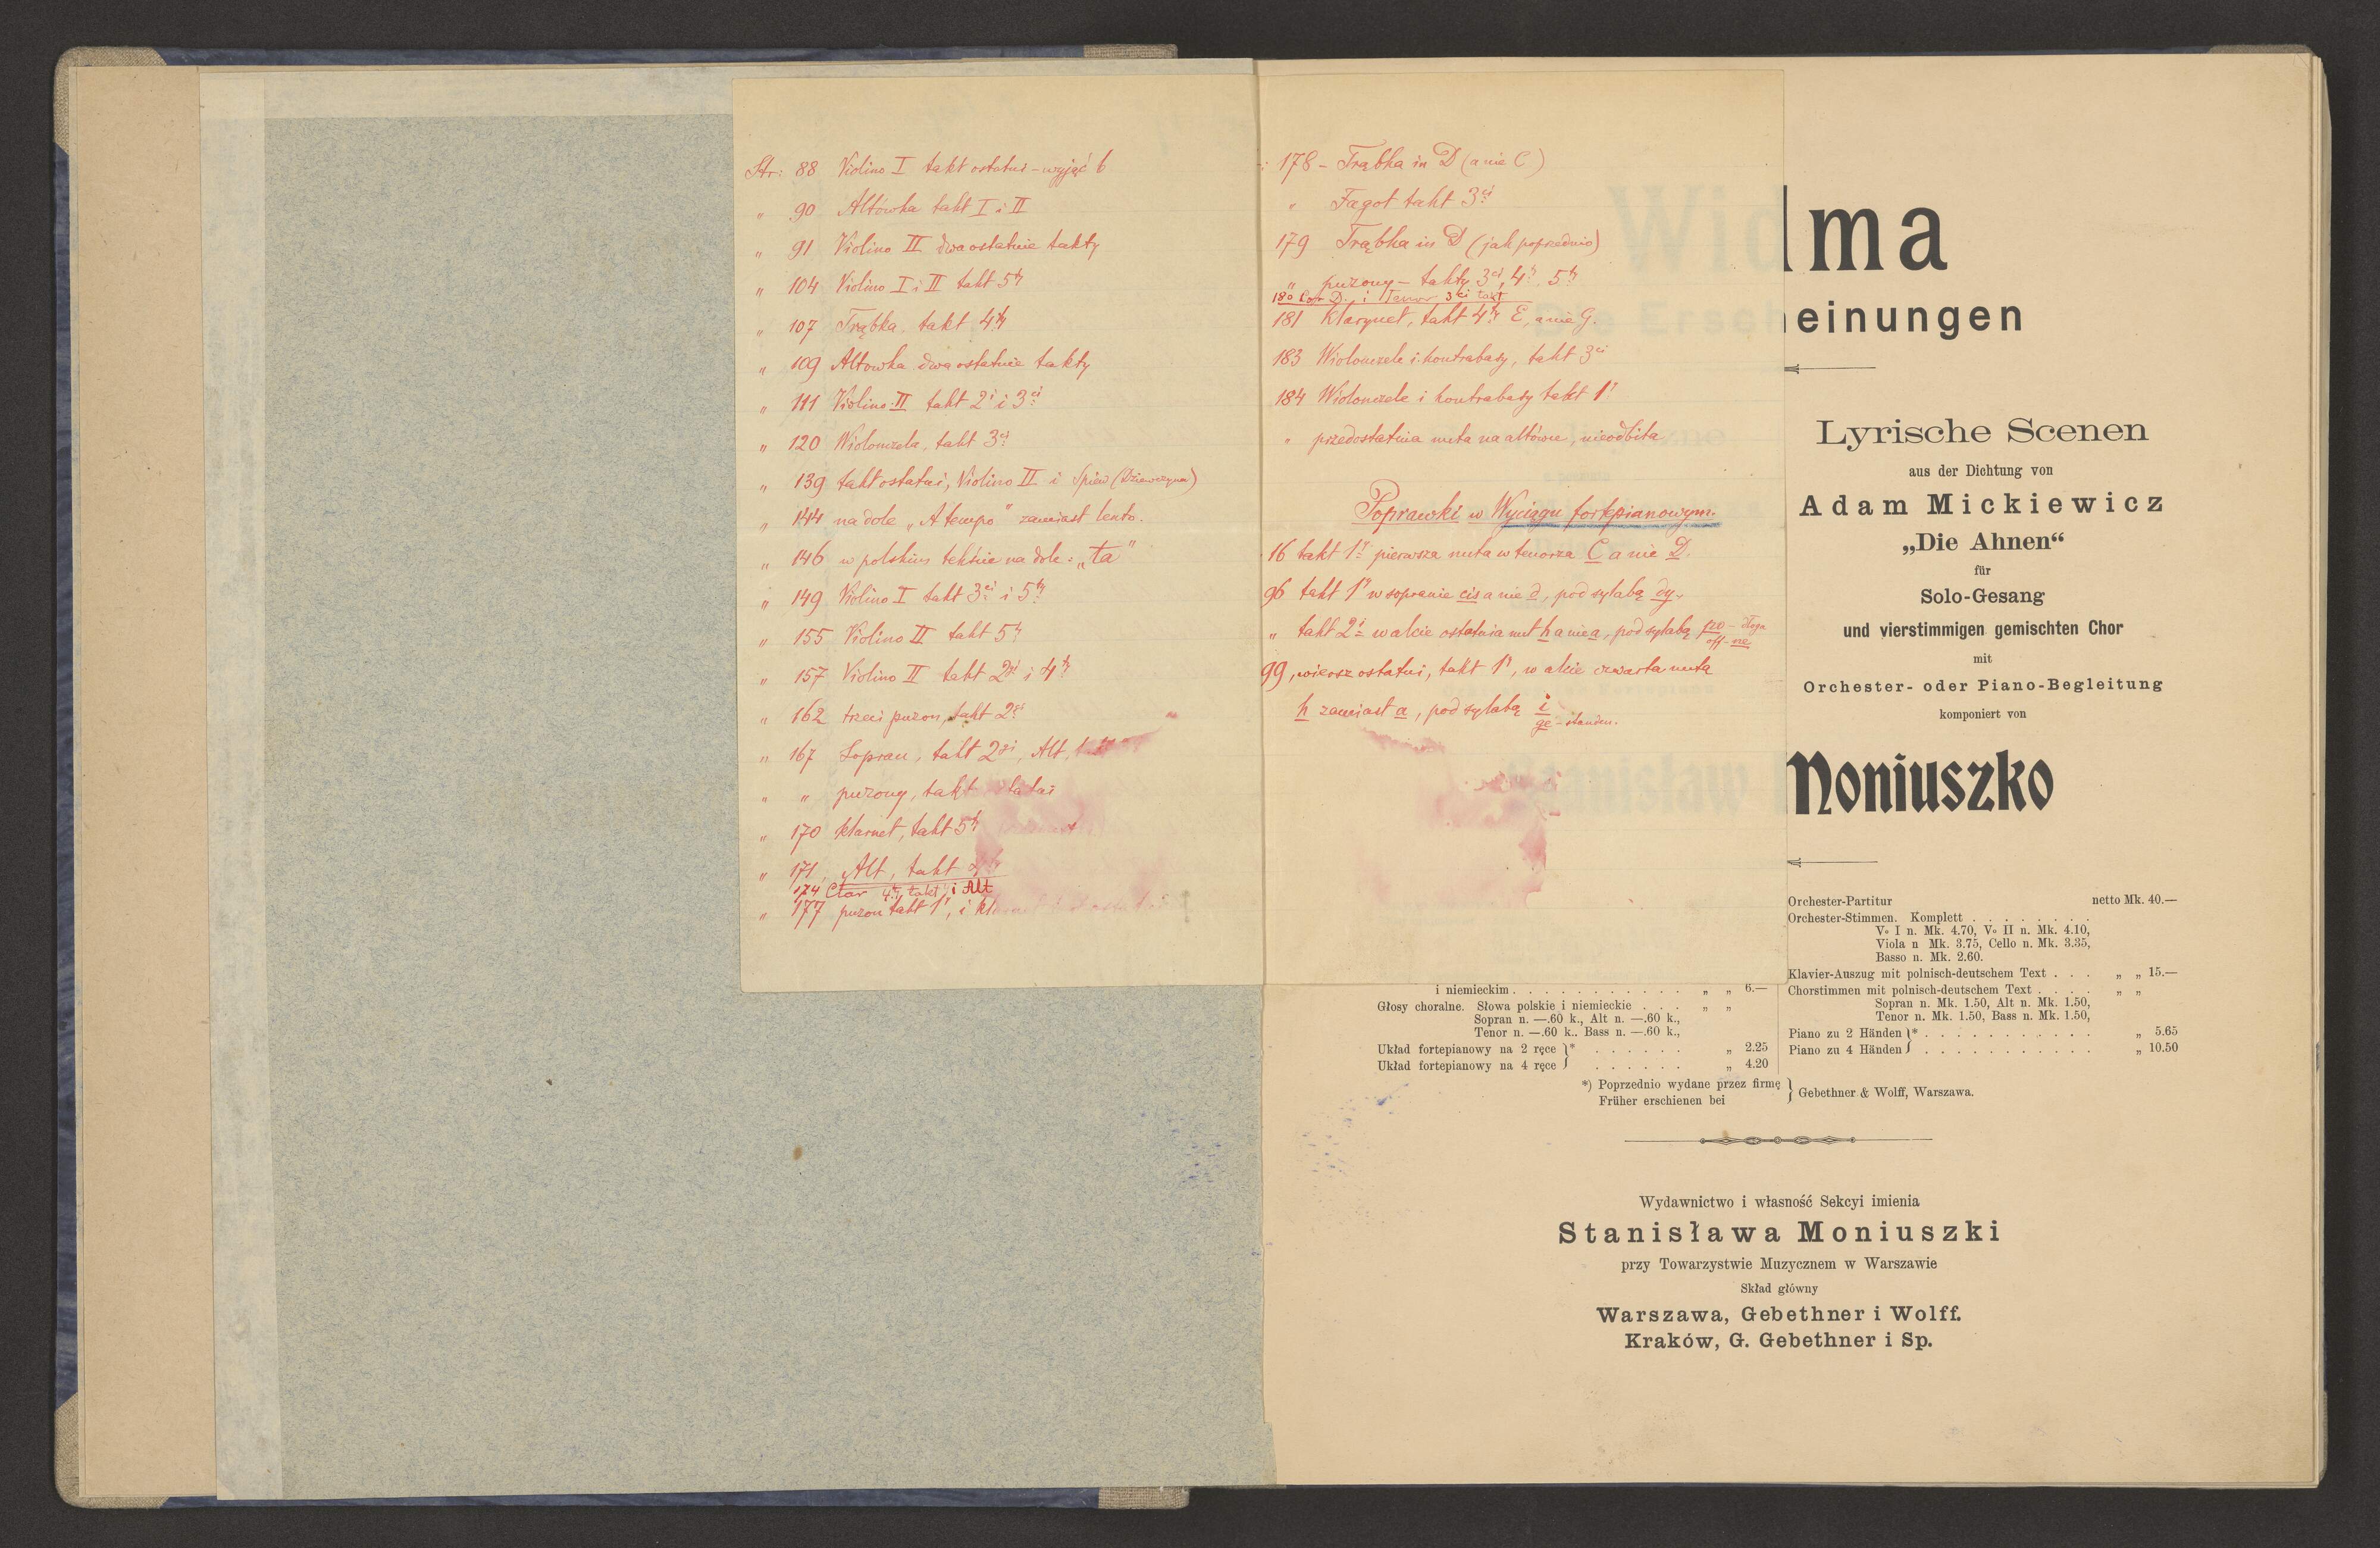 Str: 88 Violino I takt ostatni – wyjąć b
" 90 Altówka takt I i II
" 91 Violino II dwa ostatnie takty
" 104 Violino I i II takt 5ty
" 107 Trąbka, takt 4ty
" 109 Altowka dwa ostatnie takty
" 111 Violino II takt 2i i 3ci
" 120 Wiolonczela, takt 3ci
" 139 takt ostatni, Violino II i Śpiew (Dziewczyna)
" 144 na dole „A tempo" zamiast lento.
" 146 w polskim tekście na dole: „ta"
" 149 Violino I takt 3ci i 5ty
" 155 Violino II takt 5ty
" 157 Violino II takt 2gi i 4ty
" 162 trzeci puzon, takt 2gi
" 167 Sopran, takt 2gi, Alt,
" " puzony, takt
" 170 klarnet, takt 5ty
" 171, Alt, takt
174 Clar 4ty takt i Alt
" 177 puzon takt 1y, i
178 – Trąbka in D (a nie C)
" Fagot takt 3ci
179 Trąbka in D (jak poprzednio)
" puzony – takty 3ci, 4ty, 5ty
180 Cor D. i Tenor 3ci takt
181 Klarynet, takt 4ty E, a nie G.
183 Wiolonczele i kontrabasy, takt 3ci
184 Wiolonczele i kontrabasy takt 1y
" przedostatnia nuta na altówce, nieodbita
Poprawki w Wyciągu fortepianowym.
16 takt 1y pierwsza nuta w tenorze C a nie D.
96 takt 1y w sopranie cis a nie d, pod sylabą dy-
" takt 2i w alcie ostatnia nut h a nie a, pod sylabą
99, wiersz ostatni, takt 1y, w alcie czwarta nuta
h zamiast a, pod sylabą i
ge-standen.
ma
einungen
Lyrische Scenen
aus der Dichtung von
Adam Mickiewicz
„Die Ahnen“
für
Solo-Gesang
und vierstimmigen gemischten Chor
mit
Orchester- oder Piano-Begleitung
komponiert von
Moniuszko
Orchester-Partitur netto Mk. 40.—
Orchester-Stimmen. Komplett . . . . . . . .
Vo I n. Mk. 4.70, Vo II n. Mk. 4.10,
Viola n Mk. 3.75, Cello n. Mk. 3.35,
Basso n. Mk. 2.60.
Klavier-Auszug mit polnisch-deutschem Text . . . „ „ 15.—
Chorstimmen mit polnisch-deutschem Text . . . . „ „
Sopran n. Mk. 1.50, Alt n. Mk. 1.50,
Tenor n. Mk. 1.50, Bass n. Mk. 1.50,
Piano zu 2 Händen }* . . . . . . . . . . . „ 5.65
Piano zu 4 Händen } . . . . . . . . . . . „ 10.50
i niemieckim . . . . . . . . . . . „ „ 6.—
Głosy choralne. Słowa polskie i niemieckie . . . „ „
Sopran n. —.60 k., Alt n. —.60 k.,
Tenor n. —.60 k.. Bass n. —.60 k.,
Układ fortepianowy na 2 ręce }* . . . . . . „ 2.25
Układ fortepianowy na 4 ręce } . . . . . . „ 4.20
*) Poprzednio wydane przez firmę } Gebethner & Wolff, Warszawa.
Früher erschienen bei
Wydawnictwo i własność Sekcyi imienia
Stanisława Moniuszki
przy Towarzystwie Muzycznem w Warszawie
Skład główny
Warszawa, Gebethner i Wolff.
Kraków, G. Gebethner i Sp.